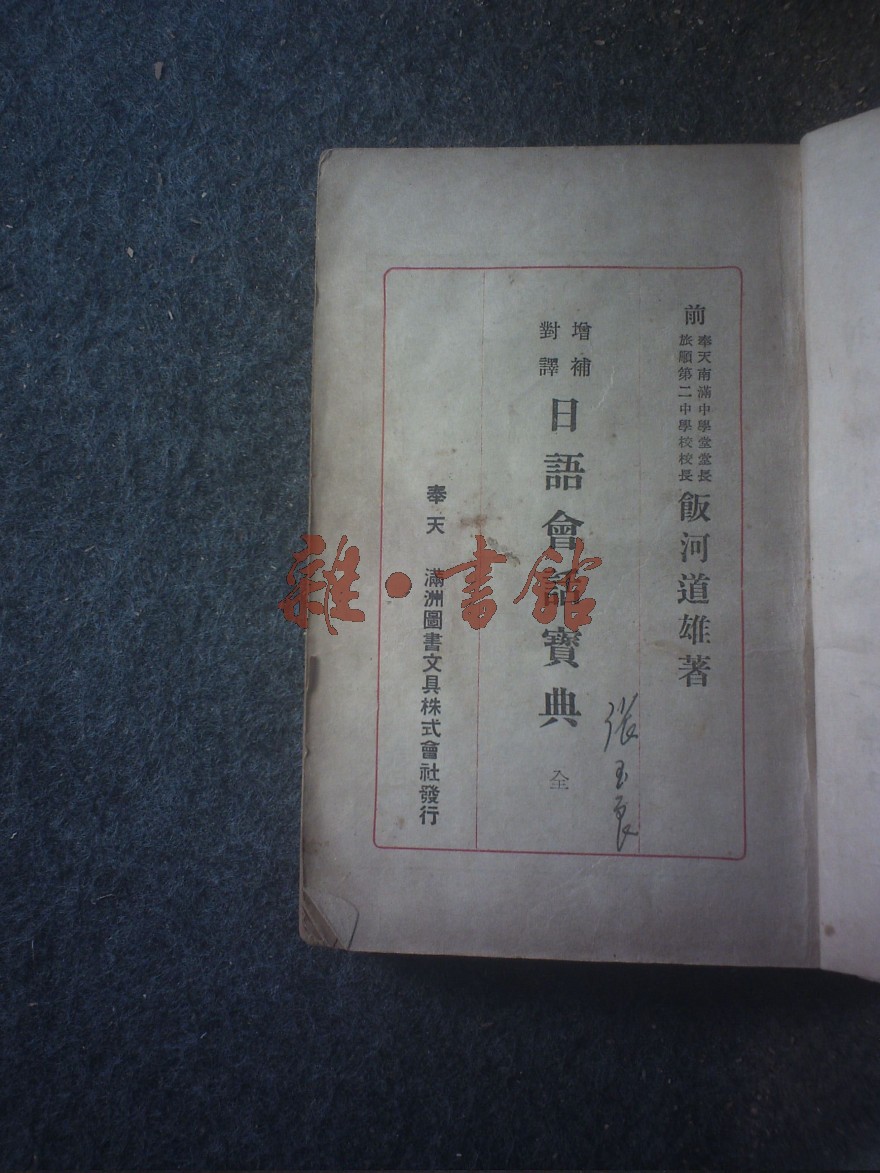 前
奉天南滿中學堂堂長
旅順第二中學校校長
飯河道雄著
增補
對譯
日語會話寶典
全
張玉良
奉天 滿洲圖書文具株式會社發行
雜·書館